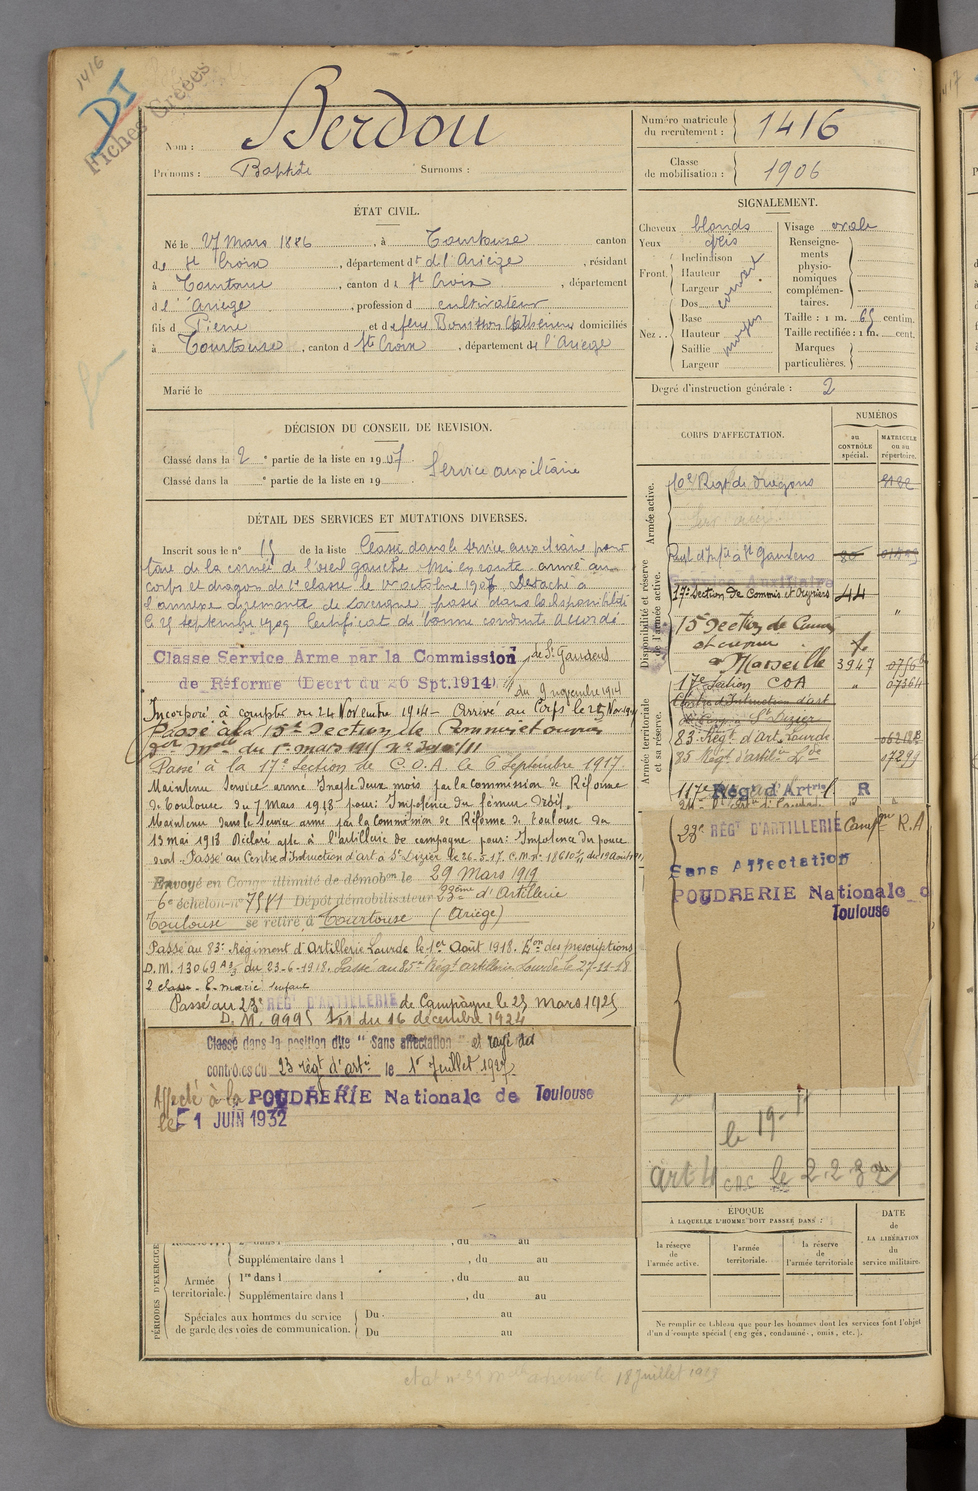 1416
DI
Fiches Créées
Nom : Berdou
Prénoms : Baptiste Surnoms :
Numéro matricule du recrutement : 1416
Classe de mobilisation : 1906
ÉTAT CIVIL.
Né le 27 Mars 1886, à Tourtouse canton
de Ste Croix, département de l'Ariège, résidant
à Tourtouse, canton de Ste Croix, département
de l'Ariège, profession de cultivateur
fils de Pierre et de feue Bousson Catherine domiciliés
à Tourtouse, canton de Ste Croix, département de l'Ariège
Marié le
SIGNALEMENT.
Cheveux blonds
Yeux gris
Front. Inclinaison
Hauteur
Largeur
couvert
Nez. Dos
Base
Hauteur
Saillie
Largeur
moyen
Visage ovale
Renseignements physionomiques complémentaires.
Taille : 1 m. 65 centim.
Taille rectifiée : 1 m. cent.
Marques particulières.
Degré d'instruction générale : 2
DÉCISION DU CONSEIL DE REVISION.
Classé dans la 2e partie de la liste en 1907 Service auxiliaire
Classé dans la e partie de la liste en 19
DÉTAIL DES SERVICES ET MUTATIONS DIVERSES.
Inscrit sous le n° 15 de la liste Classé dans le service auxiliaire pour
taie de la cornée de l'œil gauche. Mis en route arrivé au
corps et dragon de 2e classe le 1er octobre 1907 Détaché à
l'annexe de remonte de passé dans la disponibilité
le 25 septembre 1909 Certificat de bonne conduite Accordé
Classe Service Arme par la Commission de St Gaudens
de Réforme (Decrt du 26 Spt. 1914) du 9 novembre 1914
Incorporé à compter du 24 Novembre 1914 - Arrivé au Corps le 25 Nov 1914
Passé à la 15e Section de Commis et ouvriers
du 1er mars 1915
Passé à la 17e Section de C.O.A. le 6 Septembre 1917.
Maintenu Service armé Inapte deux mois par la commission de Réforme
de Toulouse du 7 Mars 1918 pour : Impotence du fémur droit.
Maintenu dans le Service armé par la Commission de Réforme de Toulouse du
13 mai 1918 Déclaré apte à l'artillerie de campagne pour : Impotence du pouce
droit - Passé au Centre d'Instruction d'art à St Lizier le 26-5-17.
Envoyé en Congé illimité de démobon le 29 Mars 1919
6e échelon n° 7541 Dépôt démobilisateur 23ème d'Artillerie
Toulouse se retire à Tourtouse (Ariège)
Passé au 83e Régiment d'Artillerie Lourde le 1er Août 1918. Eon des prescriptions
D.M. 13069 A 3/3 du 23-6-1918. Passé au 85e Régt artillerie Lourde le 27-11-18
2 classe - marié 1 enfant
Passé au 23e RÉGt D'ARTILLERIE de Campagne le 25 mars 1925
D.M. 9995 1/11 du 16 décembre 1924
Classé dans la position dite " Sans affectation " et rayé des
controles du 23 régt d'artie le 1er Juillet 1927.
Affecté à la POUDRERIE Nationale de Toulouse
le - 1 JUIN 1932
CORPS D'AFFECTATION.
NUMÉROS
au CONTRÔLE spécial.
MATRICULE ou au répertoire.
Armée active.
10e Régt de dragons
Disponibilité et réserve de l'armée active.
Regt d'Infie à St Gaudens
Service Auxiliaire
17e Section de Commis et Ouvriers 44
15e Section de Commis
et ouvriers
à Marseille 3947
17e Section COA " 07364
Armée territoriale et sa réserve.
Centre d'Instruction d'art
de Camp. à St Lizier
83e Régt d'art. Lourde
85e Régt d'artilie Lde
117e Régt d'Artrie R
23e RÉGt D'ARTILLERIE Campne R.A
Sans Affectation
POUDRERIE Nationale d
Toulouse
le 19-
art 4 C.R.C. le 2.2.32
ÉPOQUE
À LAQUELLE L'HOMME DOIT PASSER DANS :
la réserve de l'armée active.
l'armée territoriale.
la réserve de l'armée territoriale
DATE de LA LIBÉRATION du service militaire.
PÉRIODES D'EXERCICE
Supplémentaire dans l , du au
Armée territoriale. 1re dans l , du au
Supplémentaire dans l , du au
Spéciales aux hommes du service de garde des voies de communication. Du au
Du au
Ne remplir ce tableau que pour les hommes dont les services font l'objet
d'un décompte spécial (engagés, condamnés, omis, etc.).
18 Juillet 1919